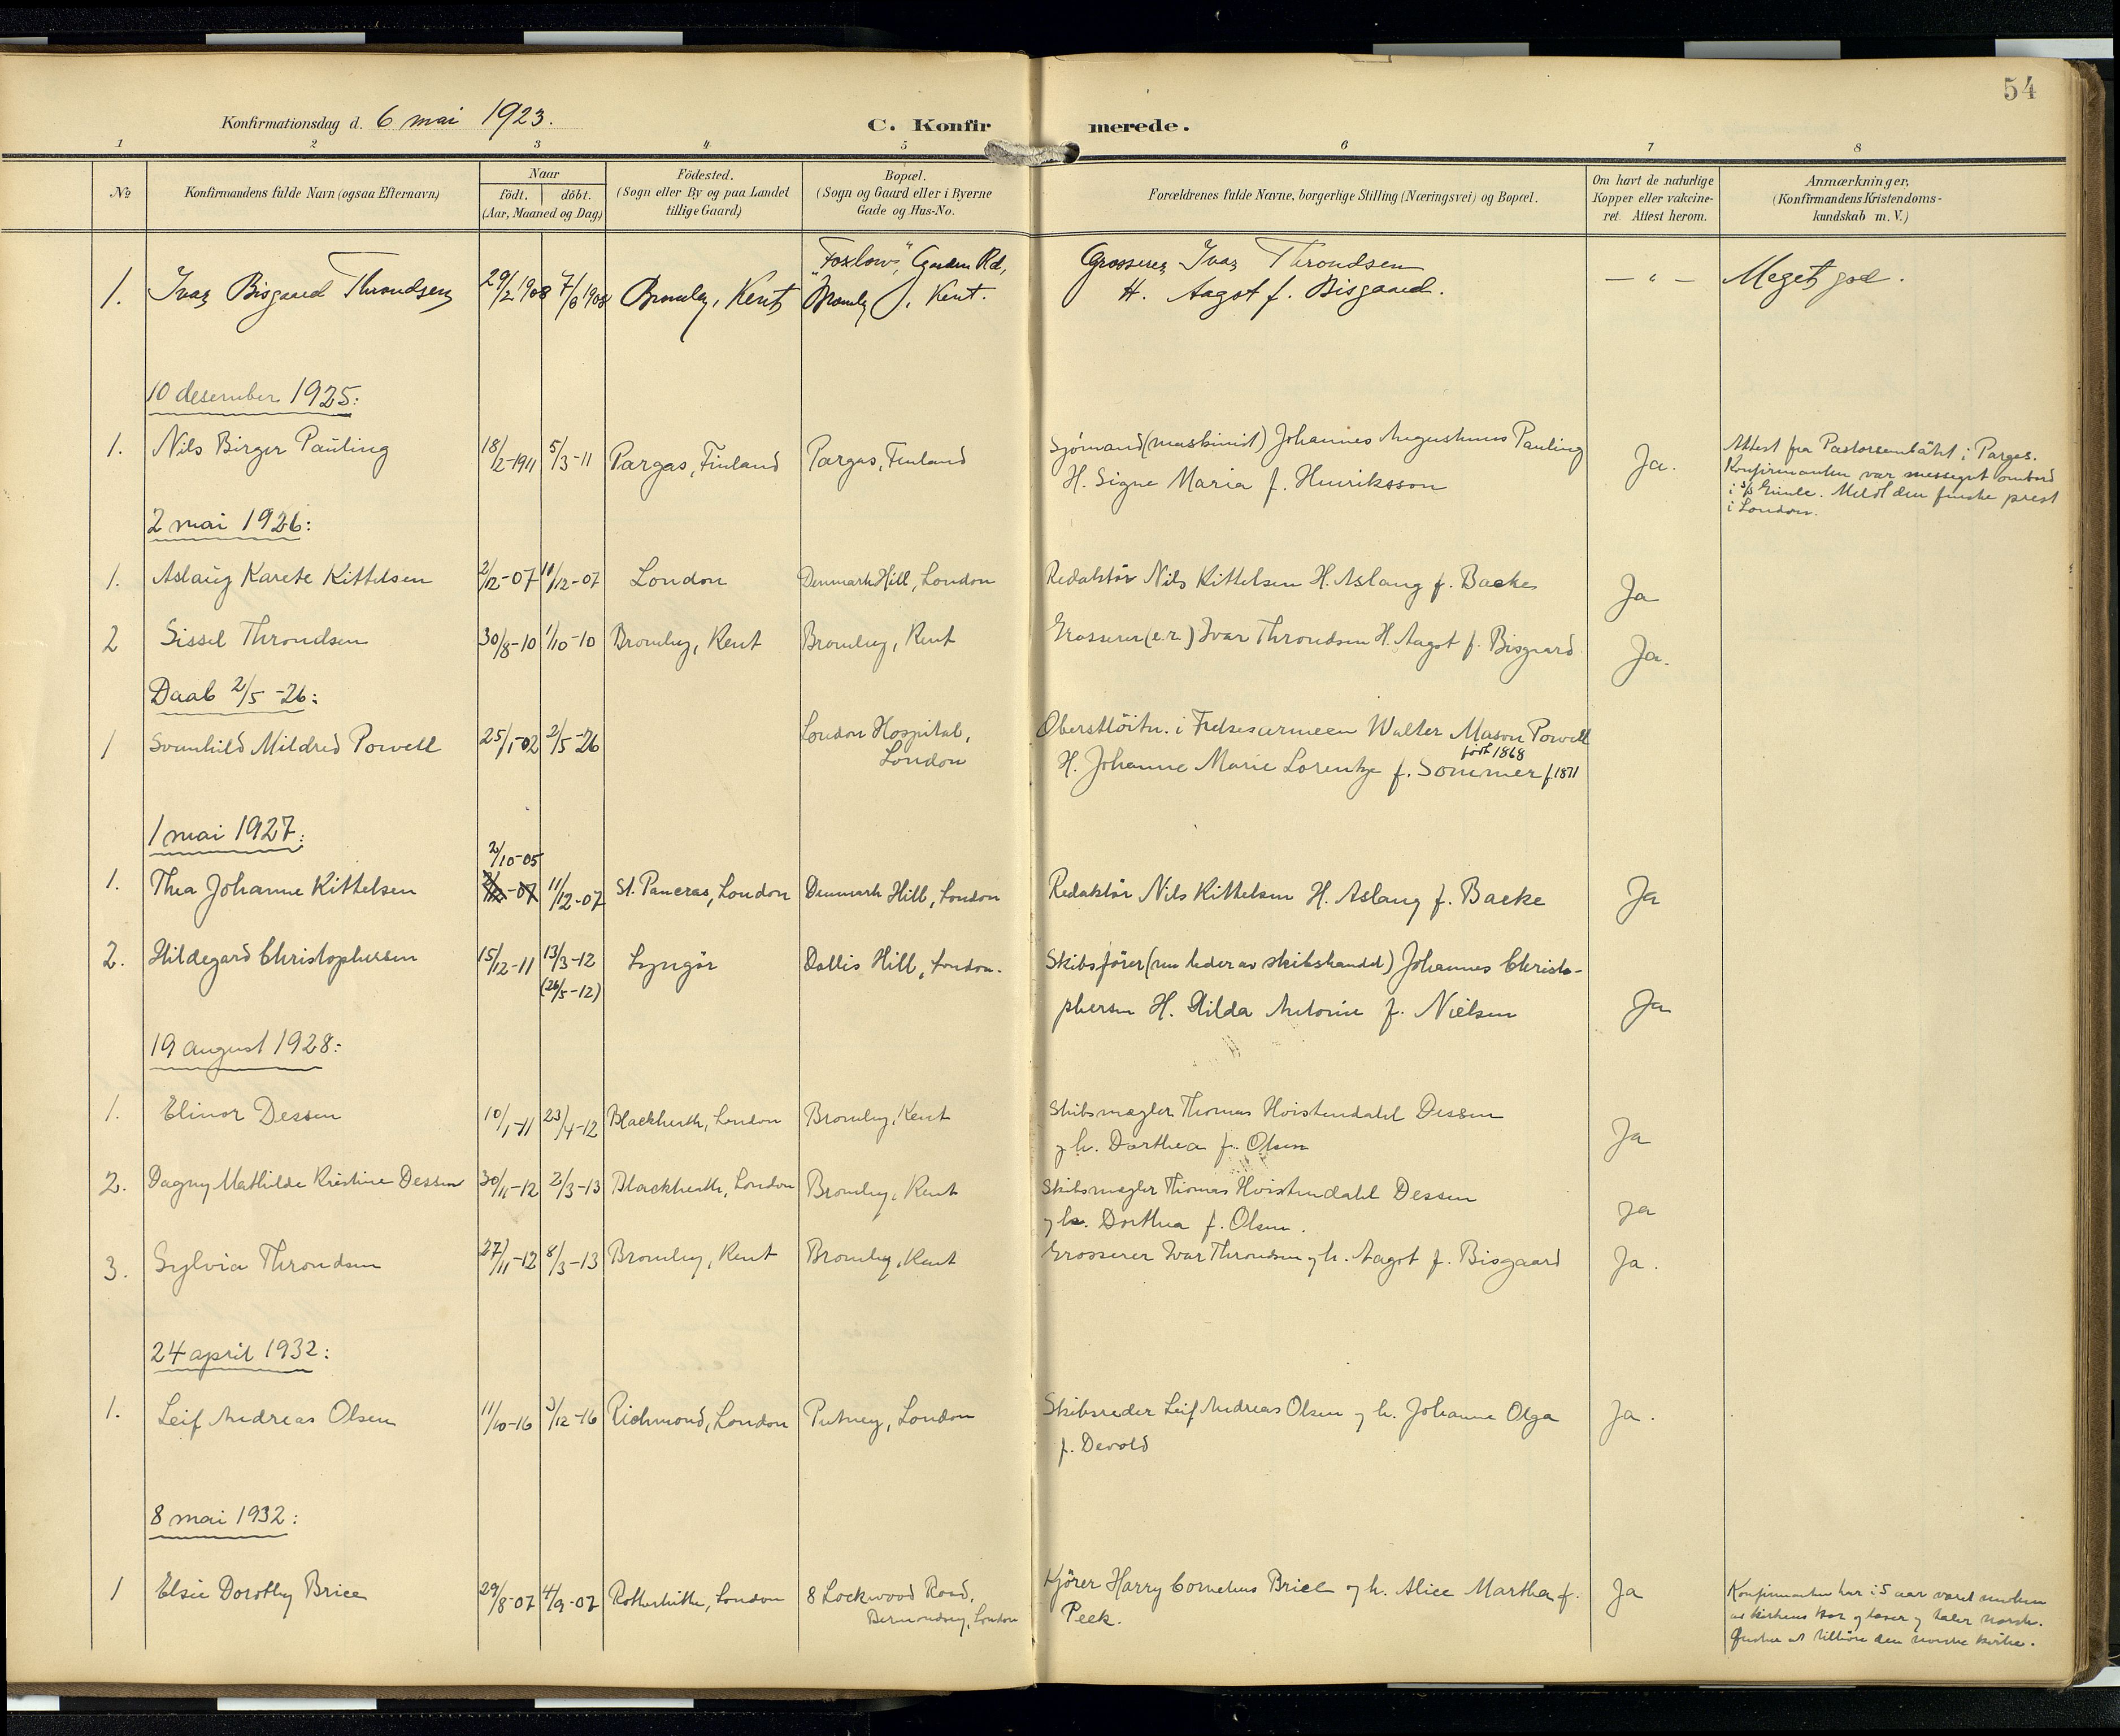 54
Konfirmationsdag d. 6 mai 1923.
C. Konfirmerede.
1 2 3 4 5 6 7 8
No
Konfirmandens fulde Navn (ogsaa Efternavn)
Naar
födt. döbt.
(Aar, Maaned og Dag)
Födested.
(Sogn eller By og paa Landet
tillige Gaard)
Bopæl.
(Sogn og Gaard eller i Byerne
Gade og Hus-No.
Forældrenes fulde Navne, borgerlige Stilling (Næringsvei) og Bopæl.
Om havt de naturlige
Kopper eller vakcine-
ret. Attest herom.
Anmærkninger,
(Konfirmandens Kristendoms-
kundskab m. V.)
1. Ivar Bisgaard Throndsen 29/2 1908 7/6 1908 Bromley, Kent "Foxlow", Garden Rd,
Bromley, Kent. Grosserer Ivar Throndsen
H. Aagot f. Bisgaard. — " — Meget god.
10 desember 1925:
1. Nils Birger Pauling 18/2-1911 5/3-11 Pargas, Finland Pargas, Finland Sjömand (maskinist) Johannes Augustinus Pauling
H. Signe Maria f. Henriksson Ja. Attest fra Pastorsembätet i Pargas.
Konfirmanten var messegut ombord
i s/s Gimle. Meldt den finske prest
i London.
2 mai 1926:
1. Aslaug Karete Kittelsen 2/12-07 11/12-07 London Denmark Hill, London Redaktör Nils Kittelsen H. Aslaug f. Backe Ja
2 Sissel Throndsen 30/8-10 1/10-10 Bromley, Kent Bromley, Kent Grosserer (e.r.) Ivar Throndsen H. Aagot f. Bisgaard Ja.
Daab 2/5-26:
1 Svanhild Mildred Powell 25/1-02 2/5-26 London Hospital,
London Oberstlöitn. i Frelsesarmeen Walter Mason Powell
född 1868
H. Johanne Marie Lorentze f. Sommer f 1871
1 mai 1927:
2/10-05
1. Thea Johanne Kittelsen 2/12-07 11/12-07 St. Pancras, London Denmark Hill, London Redaktör Nils Kittelsen H. Aslaug f. Backe Ja
2. Hildegard Christophersen 15/12-11 13/3-12
(26/5-12) Lyngör Dollis Hill, London. Skibsförer (nu leder av skibshandel) Johannes Christo-
phersen H. Hilda Antonie f. Nielsen Ja
19 august 1928:
1. Elinor Dessen 10/1-11 23/4-12 Blackheath, London Bromley, Kent Skibsmægler Thomas Hoistendahl Dessen
og h. Dorthea f. Olsen Ja
2. Dagny Mathilde Kristine Dessen 30/11-12 2/3-13 Blackheath, London Bromley, Kent Skibsmægler Thomas Hoistendahl Dessen
og h. Dorthea f. Olsen. Ja
3. Sylvia Throndsen 27/11-12 8/3-13 Bromley, Kent Bromley, Kent Grosserer Ivar Throndsen og h. Aagot f. Bisgaard Ja.
24 april 1932:
1. Leif Andreas Olsen 11/10-16 3/12-16 Richmond, London Putney, London Skibsreder Leif Andreas Olsen og h. Johanne Olga
f. Devold Ja.
8 mai 1932:
1 Elsie Dorothy Brice 29/8-07 4/9-07 Rotherhithe, London 8 Lockwood Road,
Bermondsey, London Kjörer Harry Cornelius Brice og h. Alice Martha f.
Peek. Ja Konfirmanten har i 5 aar været medlem
av kirkens kor og læser og taler norsk.
Önsker at tilhöre den norske kirke.